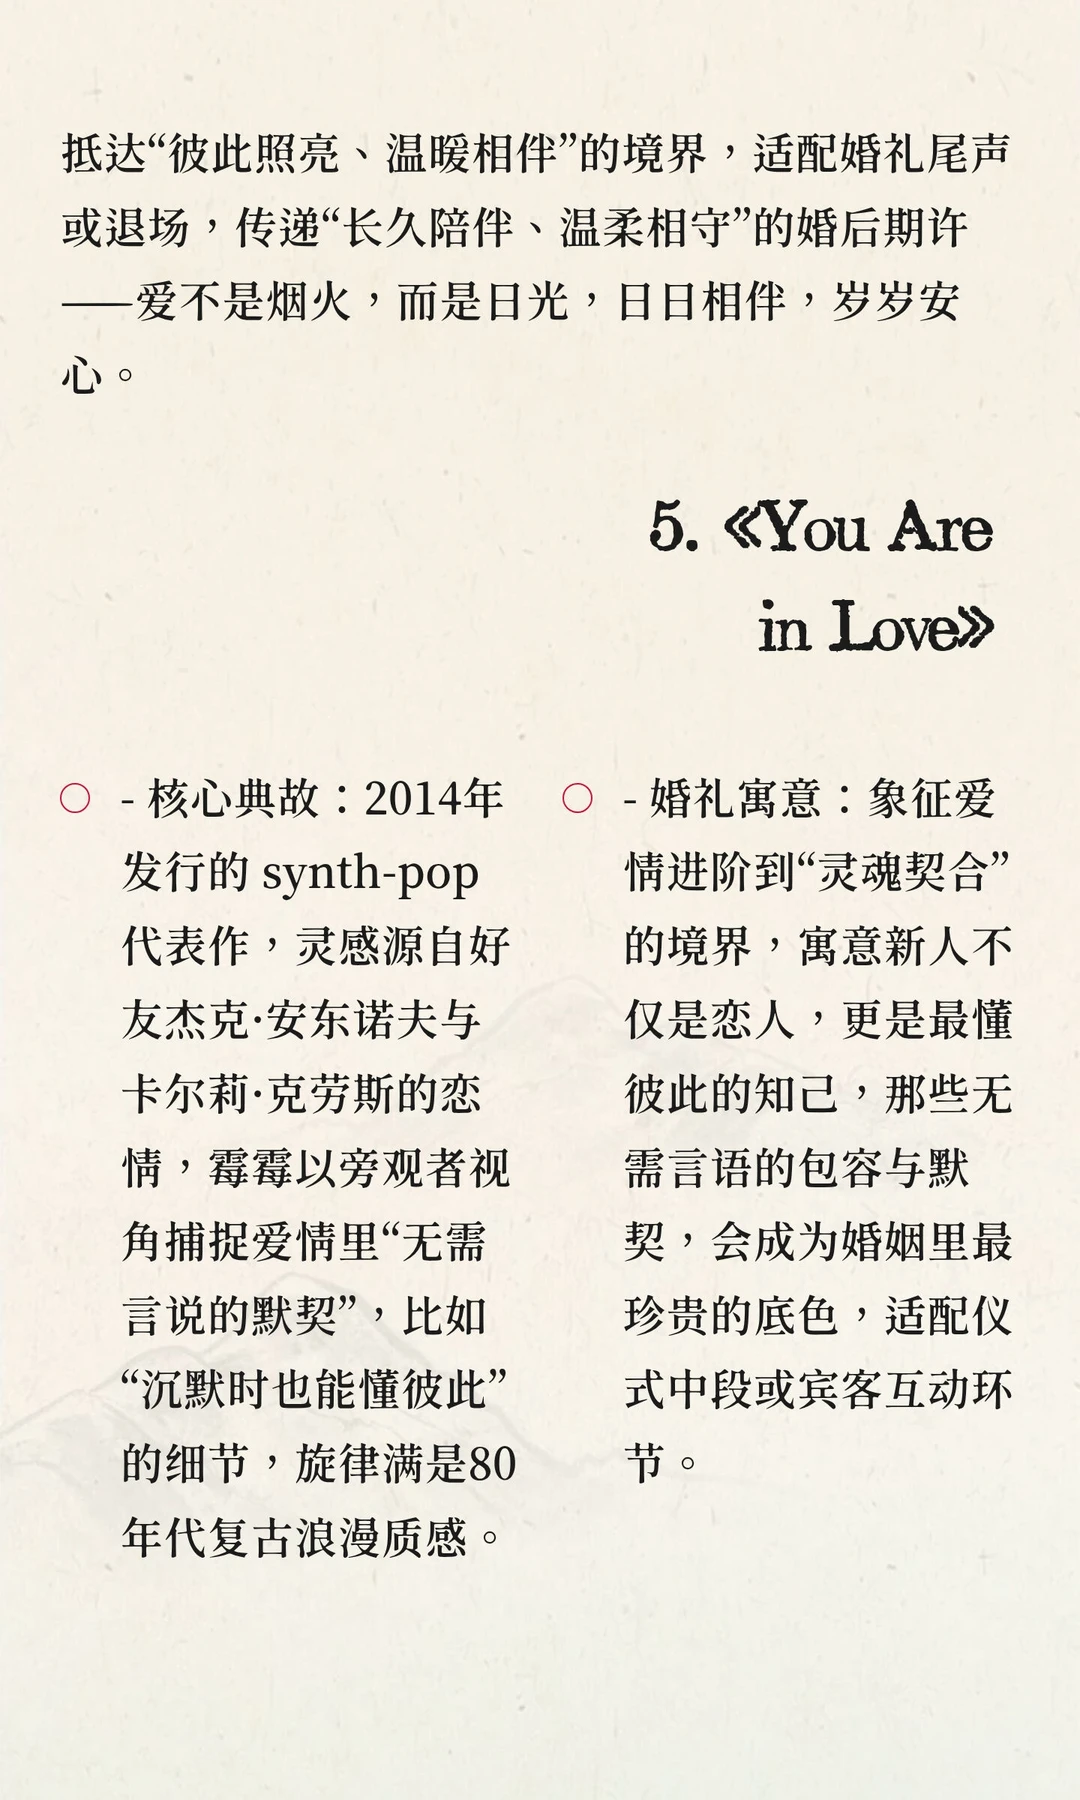 抵达“彼此照亮、温暖相伴”的境界，适配婚礼尾声
或退场，传递“长久陪伴、温柔相守”的婚后期许
——爱不是烟火，而是日光，日日相伴，岁岁安
心。
5. 《You Are
in Love》
○ - 核心典故：2014年
发行的 synth-pop
代表作，灵感源自好
友杰克·安东诺夫与
卡尔莉·克劳斯的恋
情，霉霉以旁观者视
角捕捉爱情里“无需
言说的默契”，比如
“沉默时也能懂彼此”
的细节，旋律满是80
年代复古浪漫质感。
○ - 婚礼寓意：象征爱
情进阶到“灵魂契合”
的境界，寓意新人不
仅是恋人，更是最懂
彼此的知己，那些无
需言语的包容与默
契，会成为婚姻里最
珍贵的底色，适配仪
式中段或宾客互动环
节。